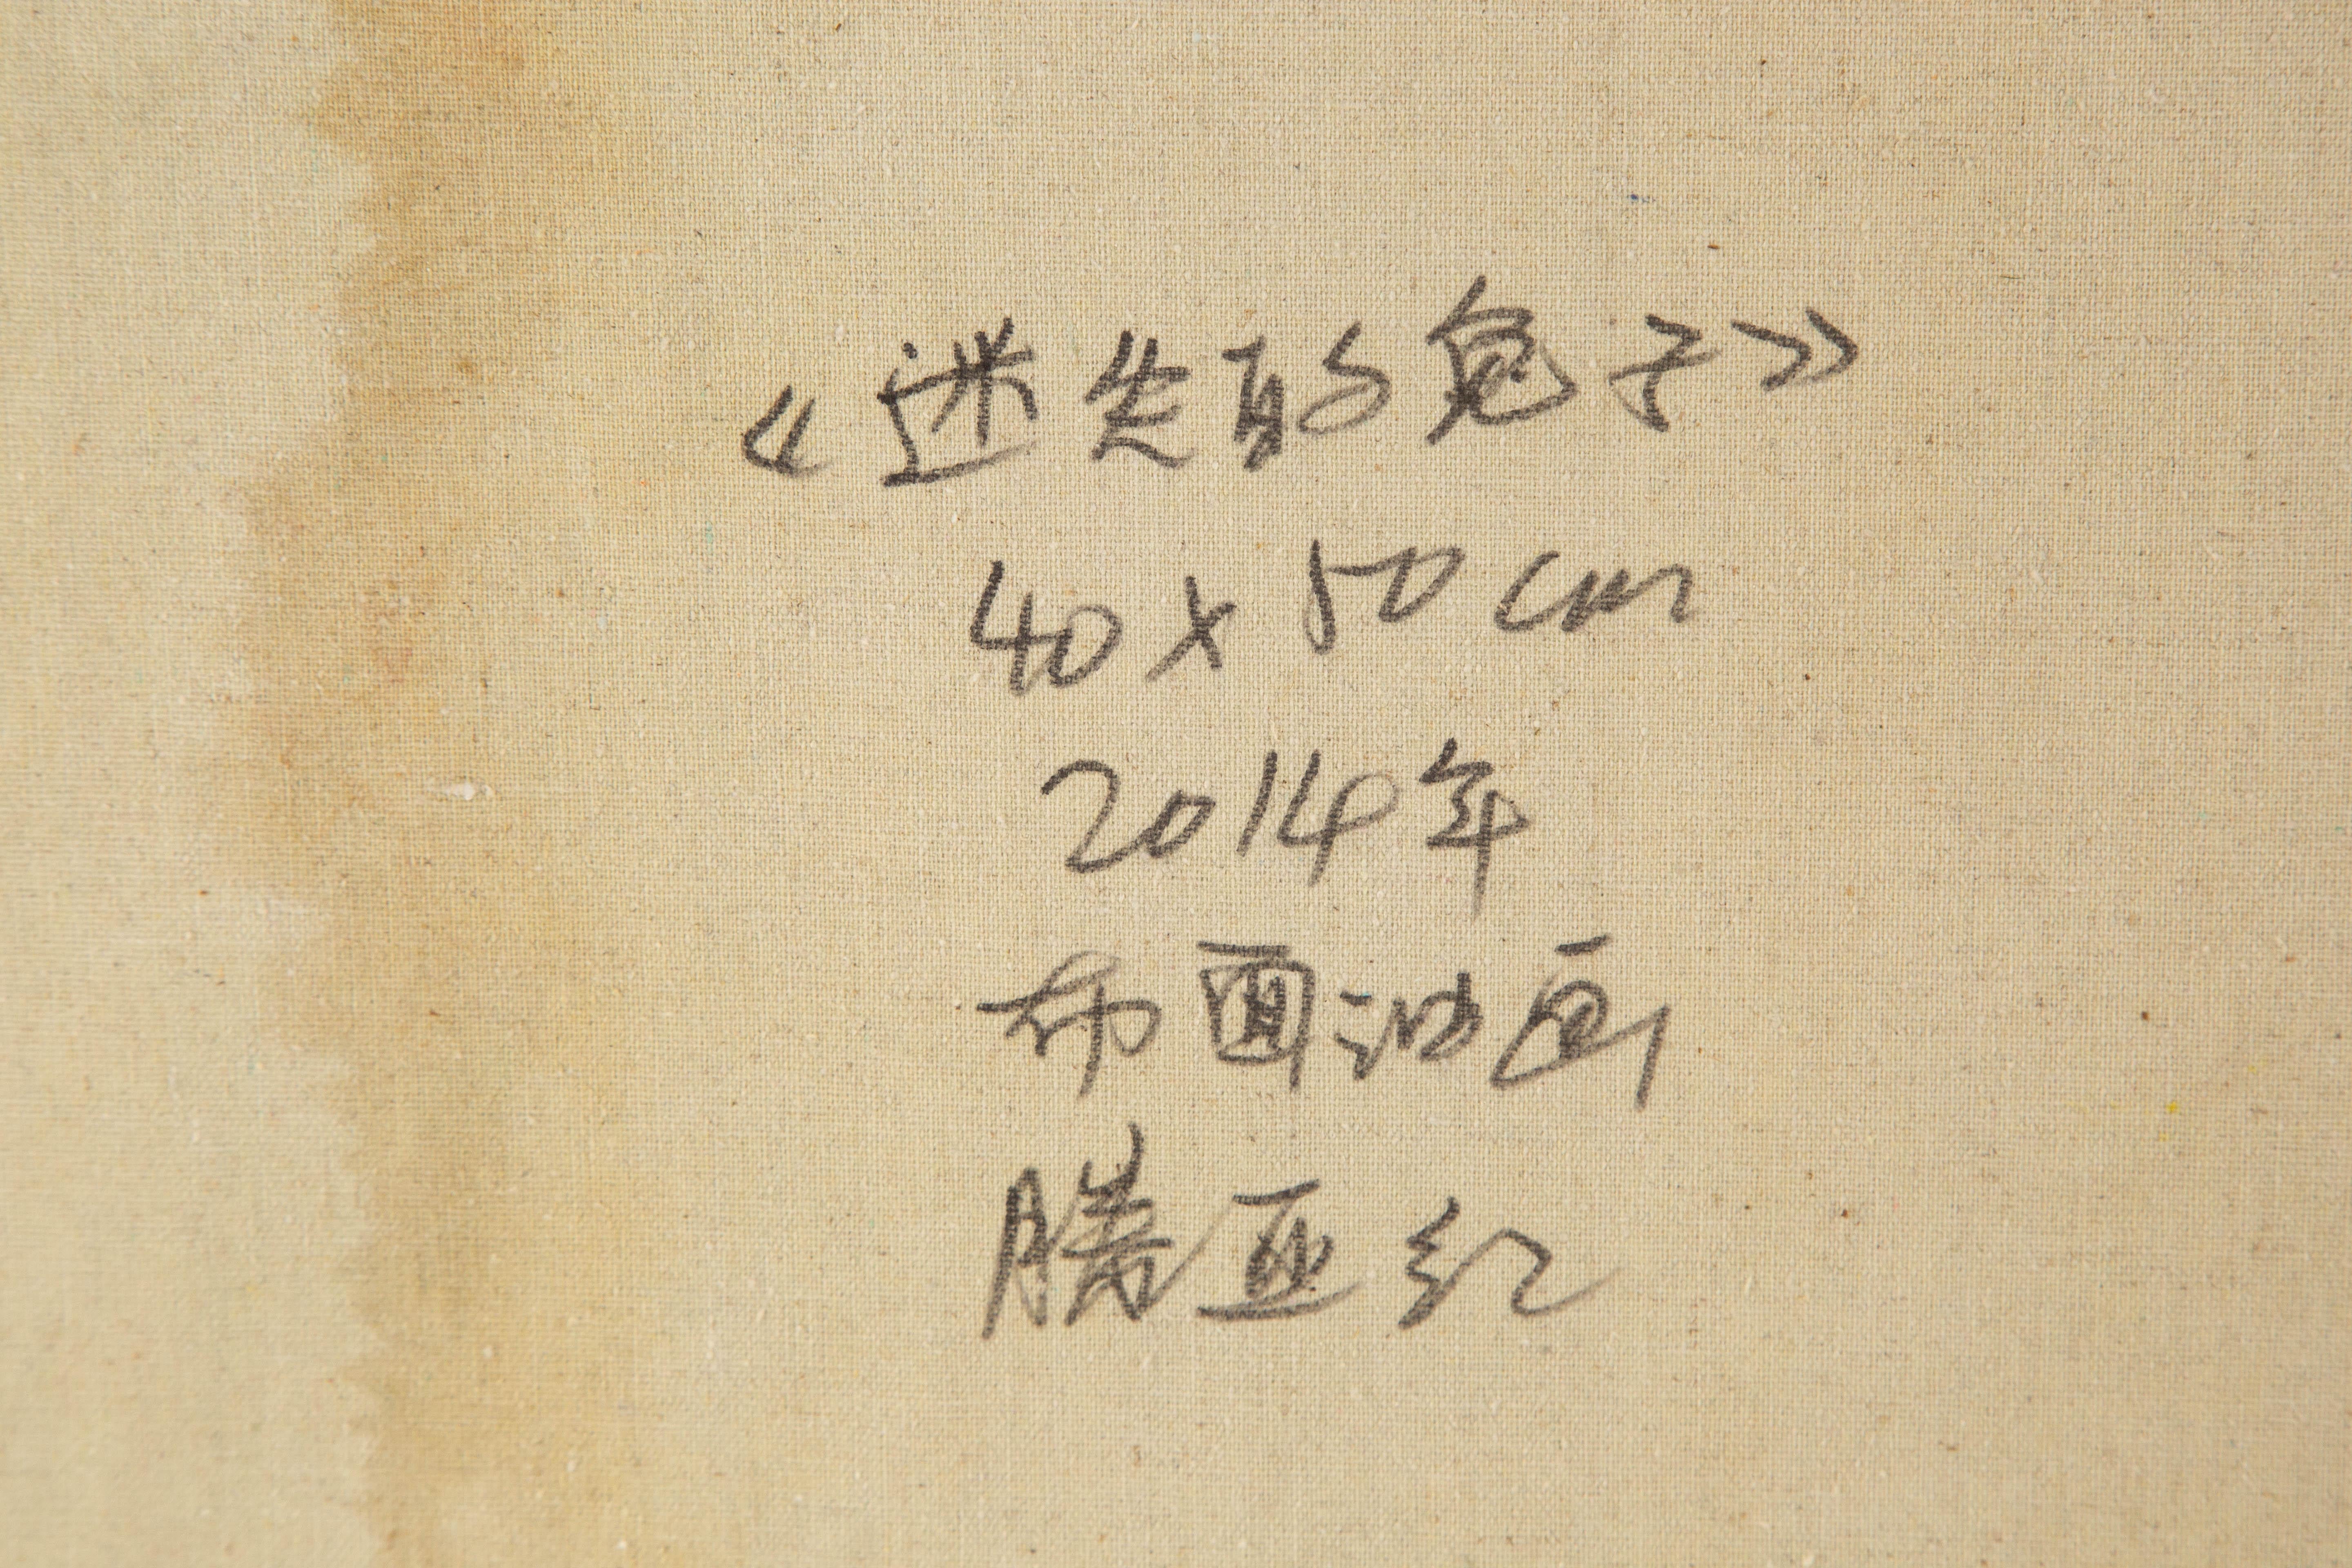 《迷失的兔子》
40 x 50 cm
2014年
布面油画
滕亚红